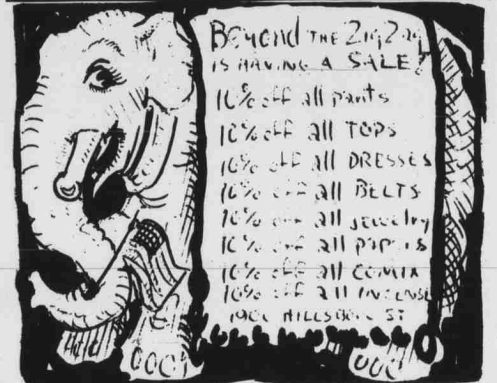 Beyond THE ZigZag
IS HAVING A SALE!
10% off all pants
10% off all TOPS
10% off all DRESSES
10% off all BELTS
10% off all jewelry
10% off all papers
10% off all COMIX
10% off all INCENSE
HILLSBORO ST